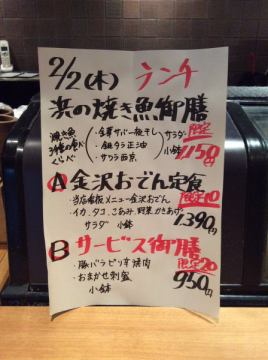 2/2(木) ランチ
浜の焼き魚御膳
焼き魚
3種の食べ
くらべ
・金華サバ一夜干し
・銀ダラ正油
・サワラ西京
サラダ
小鉢
限定
1,150円
A 金沢おでん定食
・当店看板メニュー金沢おでん
限定10
・イカ、タコ、こあみ、野菜かきあげ
サラダ 小鉢
1,390円
B サービス御膳
・豚バラピリ辛焼肉
限定20
・おまかせ刺盛
小鉢
950円